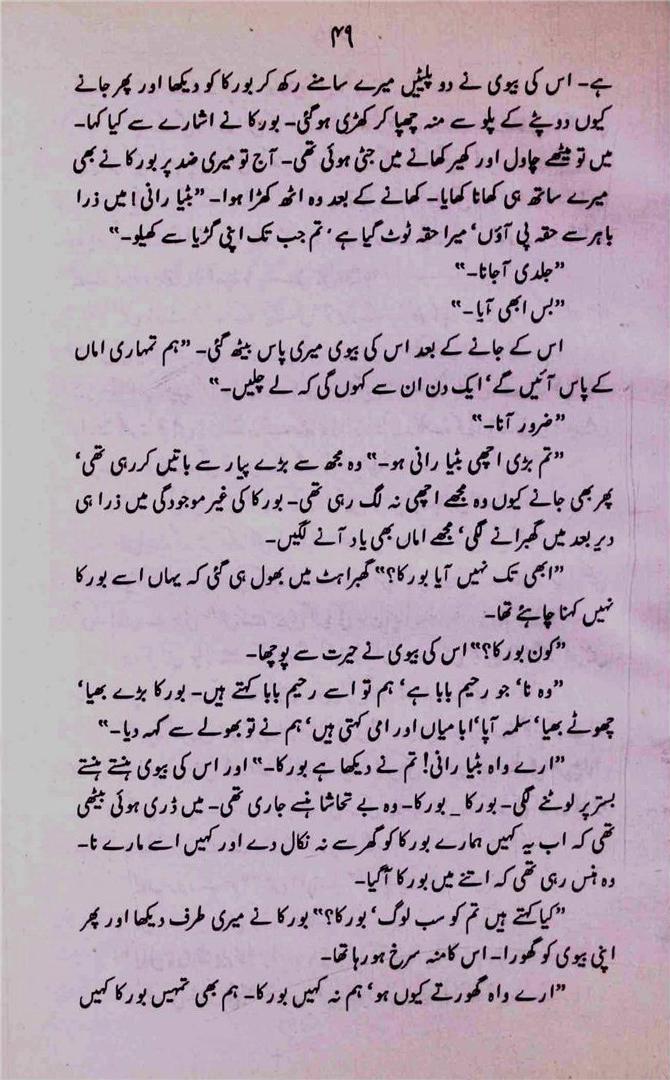 ۴۹
ہے۔ اس کی بیوی نے دو پلیٹیں میرے سامنے رکھ کر بورکا کو دیکھا اور پھر جانے
کیوں دوپٹے کے پلو سے منہ چھپا کر کھڑی ہوگئی۔ بورکا نے اشارے سے کیا کہا۔
میں تو میٹھے چاول اور کھیر کھانے میں جٹی ہوئی تھی۔ آج تو میری ضد پر بورکا نے بھی
میرے ساتھ ہی کھانا کھایا۔ کھانے کے بعد وہ اٹھ کھڑا ہوا۔ ”بٹیا رانی! میں ذرا
باہر سے حقہ پی آؤں‘ میرا حقہ ٹوٹ گیا ہے‘ تم جب تک اپنی گڑیا سے کھیلو۔“
”جلدی آجانا۔“
”بس ابھی آیا۔“
اس کے جانے کے بعد اس کی بیوی میری پاس بیٹھ گئی۔ ”ہم تمہاری اماں
کے پاس آئیں گے‘ ایک دن ان سے کہوں گی کہ لے چلیں۔“
”ضرور آنا۔“
”تم بڑی اچھی بٹیا رانی ہو۔“ وہ مجھ سے بڑے پیار سے باتیں کررہی تھی‘
پھر بھی جانے کیوں وہ مجھے اچھی نہ لگ رہی تھی۔ بورکا کی غیر موجودگی میں ذرا ہی
دیر بعد میں گھبرانے لگی‘ مجھے اماں بھی یاد آنے لگیں۔
”ابھی تک نہیں آیا بورکا؟“ گھبراہٹ میں بھول ہی گئی کہ یہاں اسے بورکا
نہیں کہنا چاہئے تھا۔
”کون بورکا؟“ اس کی بیوی نے حیرت سے پوچھا۔
”وہ نا‘ جو رحیم بابا ہے‘ ہم تو اسے رحیم بابا کہتے ہیں۔ بورکا بڑے بھیا‘
چھوٹے بھیا‘ سلمہ آپا‘ ابا میاں اور امی کہتی ہیں‘ ہم نے تو بھولے سے کہہ دیا۔“
”ارے واہ بٹیا رانی! تم نے دیکھا ہے بورکا۔“ اور اس کی بیوی ہنستے ہنستے
بستر پر لوٹنے لگی۔ بورکا _ بورکا۔ وہ بے تحاشا ہنسے جاری تھی۔ میں ڈری ہوئی بیٹھی
تھی کہ اب یہ کہیں ہمارے بورکا کو گھر سے نہ نکال دے اور کہیں اسے مارے نا۔
وہ ہنس رہی تھی کہ اتنے میں بورکا آگیا۔
”کیا کہتے ہیں تم کو سب لوگ‘ بورکا؟“ بورکا نے میری طرف دیکھا اور پھر
اپنی بیوی کو گھورا۔ اس کا منہ سرخ ہو رہا تھا۔
”ارے واہ گھورتے کیوں ہو‘ ہم نہ کہیں بورکا۔ ہم بھی تمہیں بورکا کہیں